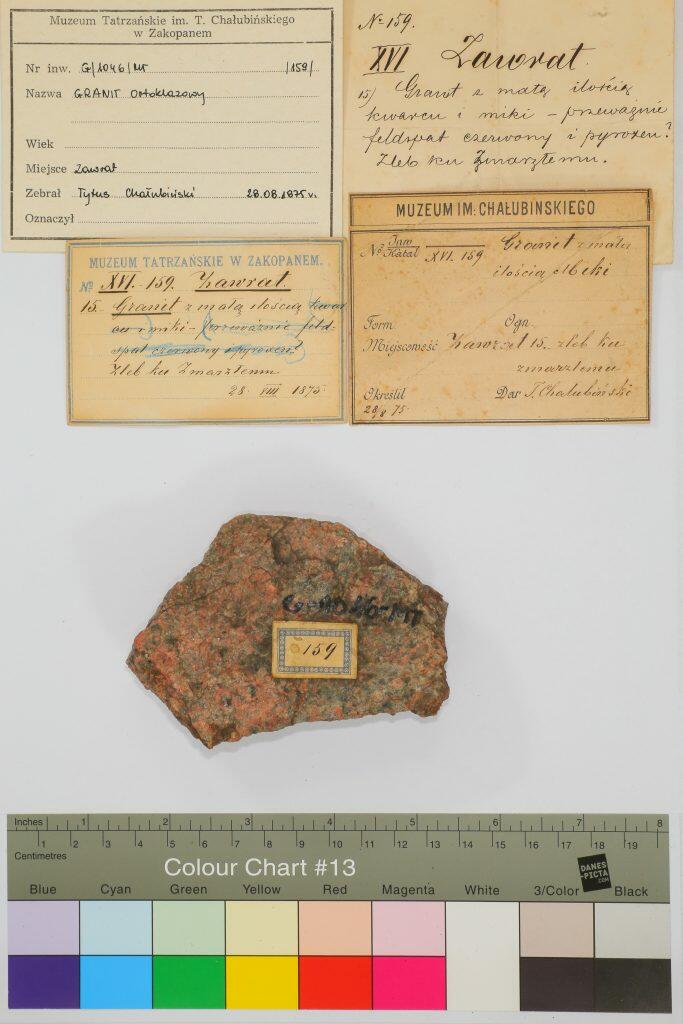 Muzeum Tatrzańskie im. T. Chałubińskiego
w Zakopanem
Nr inw. G/1046/MT /159/
Nazwa GRANIT Ortoklazowy
Wiek
Miejsce Zawrat
Zebrał Tytus Chałubiński 28.08.1875 r.
Oznaczył
№ 159.
XVI Zawrat.
15) Granit z małą ilością
kwarcu i miki – przeważnie
feldspat czerwony i pyroxen?
Żleb ku Zmarzłemu.
MUZEUM TATRZAŃSKIE W ZAKOPANEM.
№ XVI. 159. Zawrat.
15. Granit z małą ilością kwar
cu i miki – (przeważnie feld-
spat czerwony i pyroxen?)
Żleb ku Zmarzłemu
28 VIII 1875
MUZEUM IM. CHAŁUBIŃSKIEGO
№ Inw XVI. 159 Granit z małą
Katal ilością Miki
Form. Ogn.
Miejscowość Zawrat 15. żleb ku
zmarzłemu
Określił Dar T. Chałubiński
28/8 75
G-1046-MT
159
Inches 1 2 3 4 5 6 7 8
1 2 3 4 5 6 7 8 9 10 11 12 13 14 15 16 17 18 19
Centimetres
Colour Chart #13
DANES
-PICTA
.COM
Blue Cyan Green Yellow Red Magenta White 3/Color Black